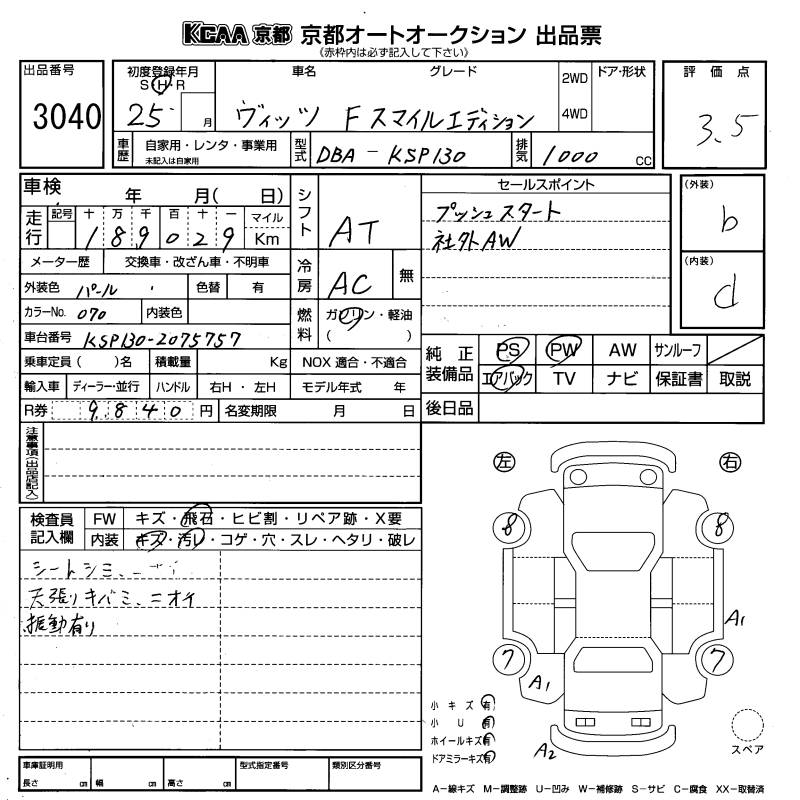 KCAA 京都 京都オートオークション 出品票
(赤枠内は必ず記入して下さい)
出品番号 3040
初度登録年月 S・H・R 25 月
車名 グレード ヴィッツ Fスマイルエディション
2WD 4WD
ドア・形状
評価点 3.5
車歴 自家用・レンタ・事業用 未記入は自家用
型式 DBA-KSP130
排気 1000 CC
車検 年 月( 日)
走行 記号 十 万 千 百 十 一 マイル
189029 Km
メーター歴 交換車・改ざん車・不明車
外装色 パール 色替 有
カラーNo. 070 内装色
車台番号 KSP130-2075757
シフト AT
冷房 AC 無
燃料 ガソリン・軽油 ( )
セールスポイント
プッシュスタート
社外AW
(外装) b
(内装) d
乗車定員( )名 積載量 Kg NOX 適合・不適合
輸入車 ディーラー・並行 ハンドル 右H・左H モデル年式 年
R券 9840 円 名変期限 月 日
純正装備品 PS PW AW サンルーフ
エアバック TV ナビ 保証書 取説
後日品
注意事項(出品店記入)
検査員記入欄 FW キズ・飛石・ヒビ割・リペア跡・X要
内装 キズ・汚レ・コゲ・穴・スレ・ヘタリ・破レ
シートシミ、
天張りキバミ、ニオイ
振動有り
左 右
8 8
A1
7 7
A1
A2
小キズ有
小U有
ホイールキズ有
ドアミラーキズ有
スペア
車庫証明用 長さ cm 幅 cm 高さ cm
型式指定番号 類別区分番号
A-線キズ M-調整跡 U-凹み W-補修跡 S-サビ C-腐食 XX-取替済